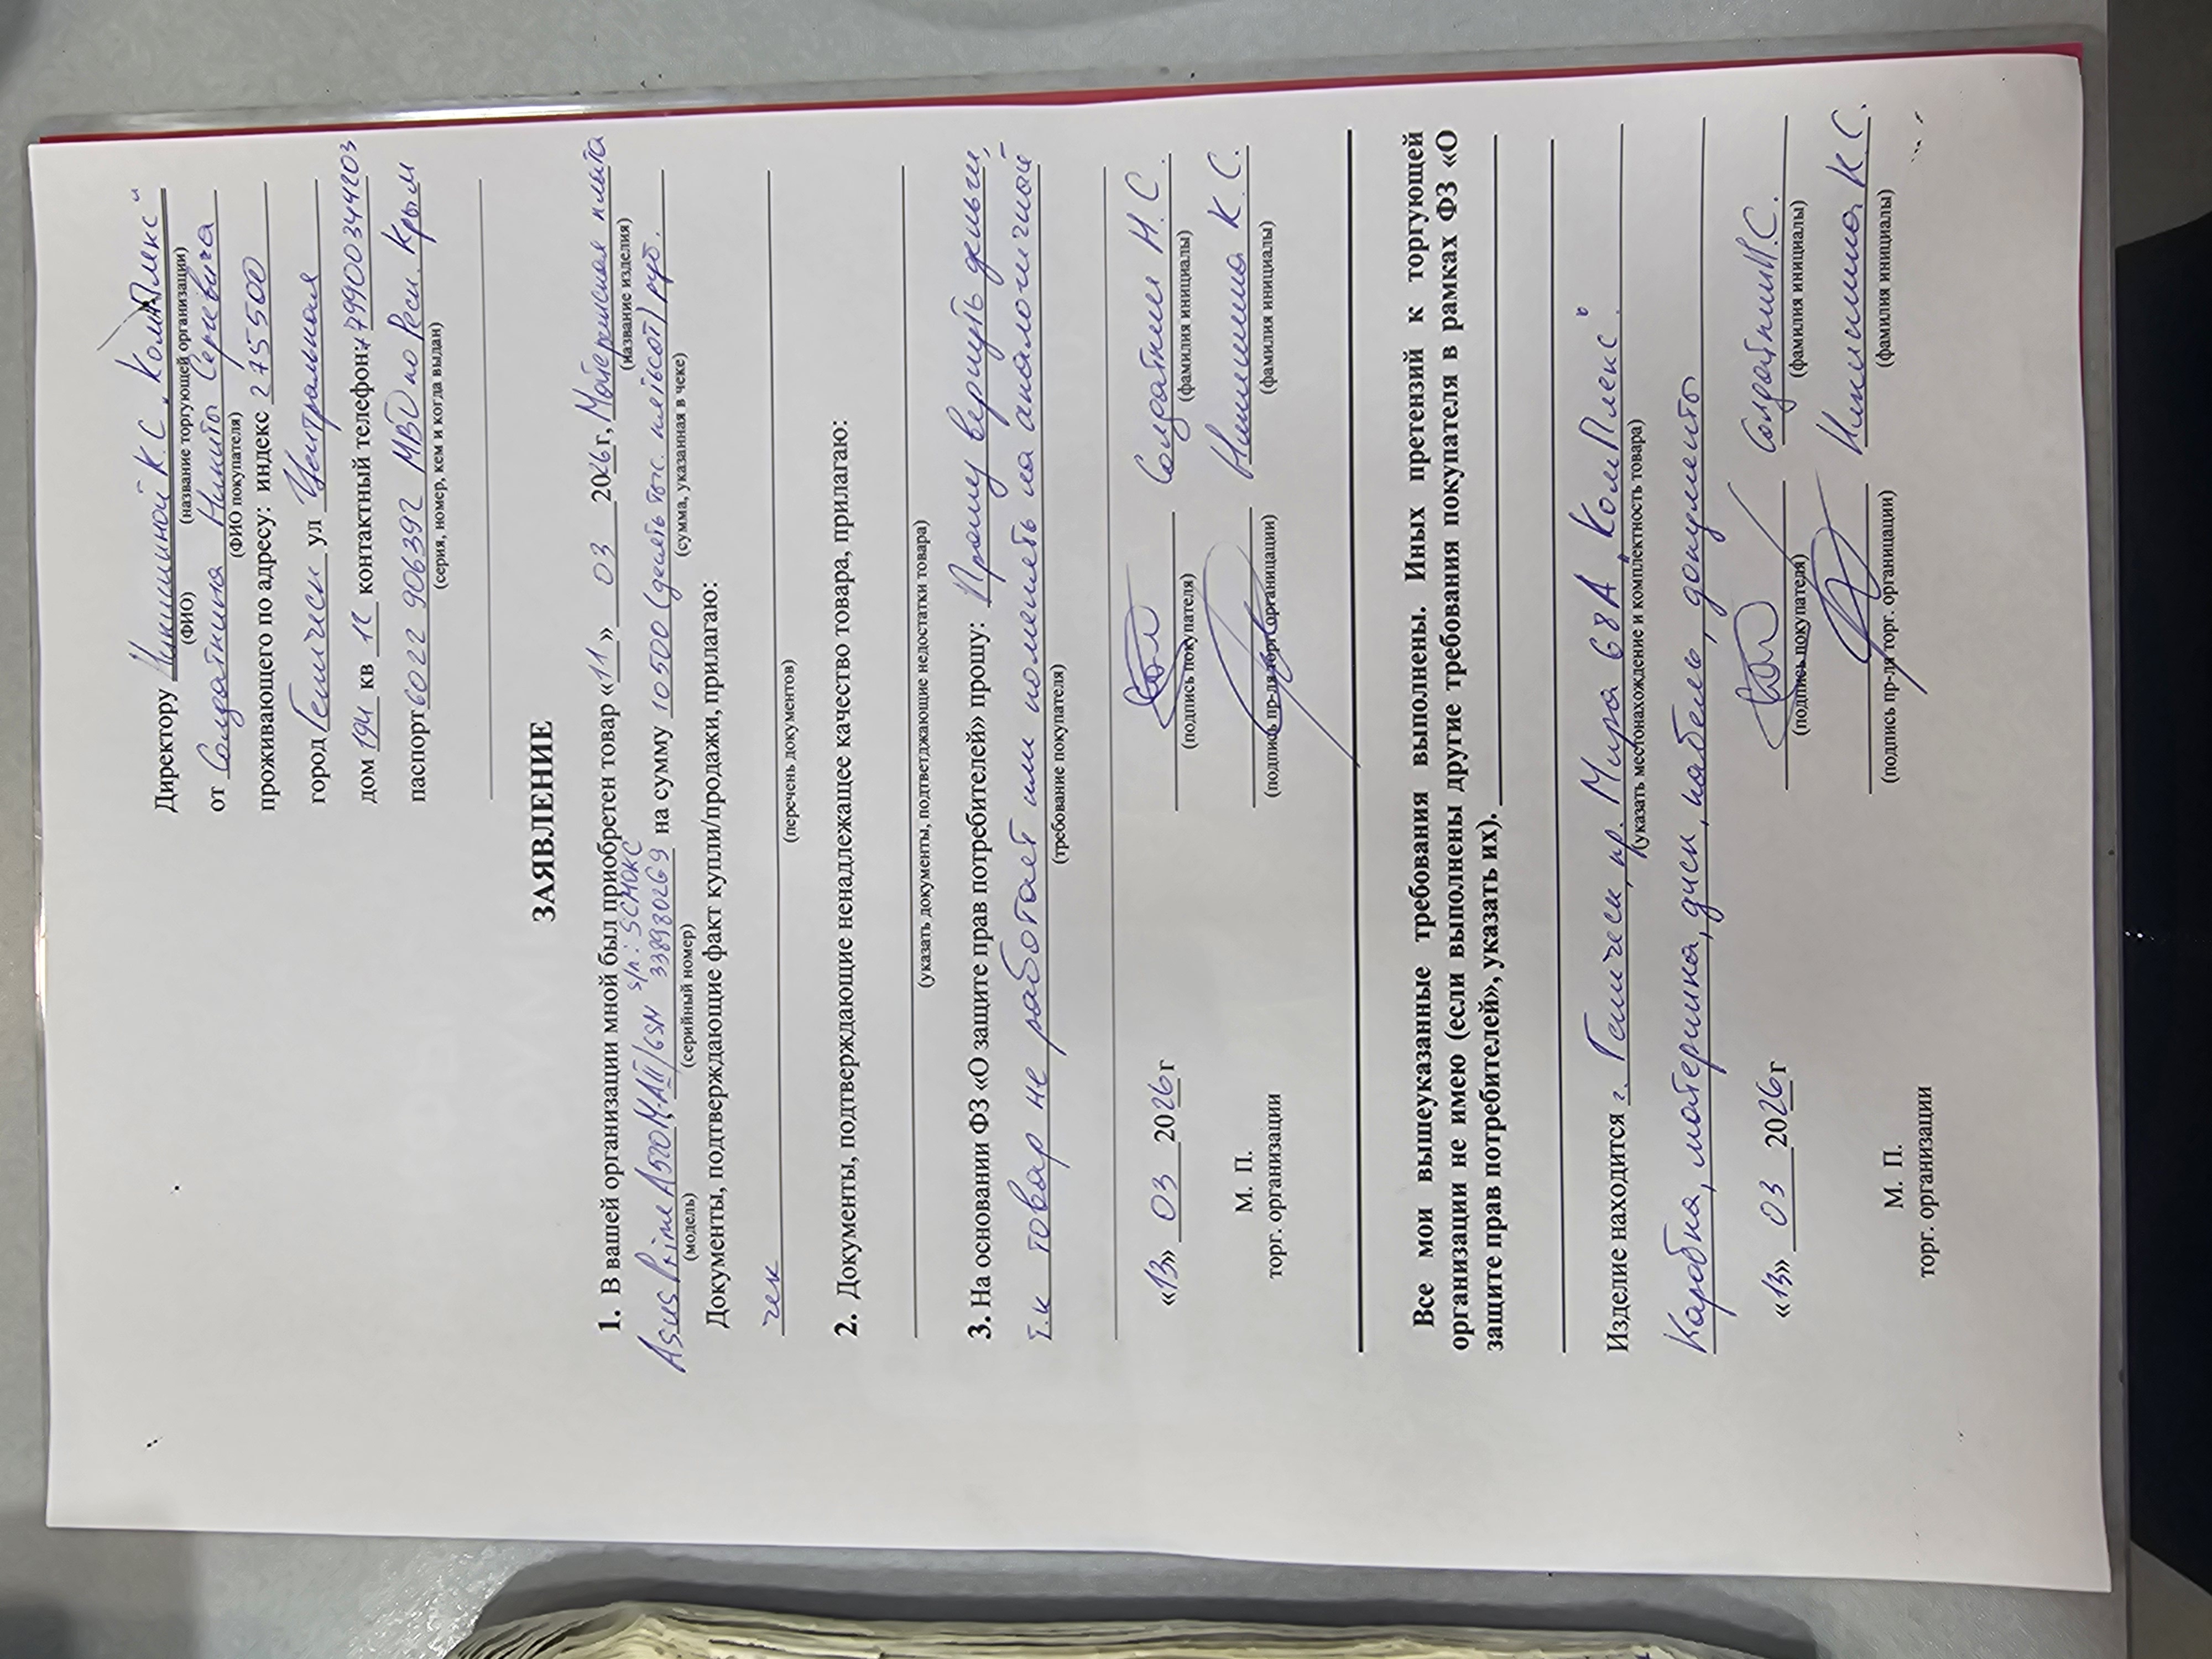 Директору Никишиной К.С. „КомПлекс"
(ФИО) (название торгующей организации)
от Солдаткина Никиты Сергеевича
(ФИО покупателя)
проживающего по адресу: индекс 275500
город Геническ ул Центральная
дом 194 кв 1С контактный телефон +79900344203
паспорт 6022 906392 МВД по Респ. Крым
(серия, номер, кем и когда выдан)
ЗАЯВЛЕНИЕ
1. В вашей организации мной был приобретен товар «11» 03 2026 г, Материнская плата
(название изделия)
s/n: SCM0KC
Asus Prime A520M-A II/GSM 338980269 на сумму 10500 (десять тыс. пятьсот) руб.
(модель) (серийный номер) (сумма, указанная в чеке)
Документы, подтверждающие факт купли/продажи, прилагаю:
чек
(перечень документов)
2. Документы, подтверждающие ненадлежащее качество товара, прилагаю:
(указать документы, подтветджающие недостатки товара)
3. На основании ФЗ «О защите прав потребителей» прошу: Прошу вернуть деньги,
т.к товар не работает или поменять на аналогичной
(требование покупателя)
«13» 03 2026 г Солдаткин Н.С.
(подпись покупателя) (фамилия инициалы)
М. П. Никишина К.С.
торг. организации (подпись пр-ля торг. организации) (фамилия инициалы)
Все мои вышеуказанные требования выполнены. Иных претензий к торгующей
организации не имею (если выполнены другие требования покупателя в рамках ФЗ «О
защите прав потребителей», указать их).
Изделие находится г. Геническ, пр. Мира 68А „КомПлекс"
(указать местонахождение и комплектность товара)
Каробка, материнка, диск, кабель, документы
«13» 03 2026 г Солдаткин Н.С.
(подпись покупателя) (фамилия инициалы)
М. П. Никишина К.С.
торг. организации (подпись пр-ля торг. организации) (фамилия инициалы)